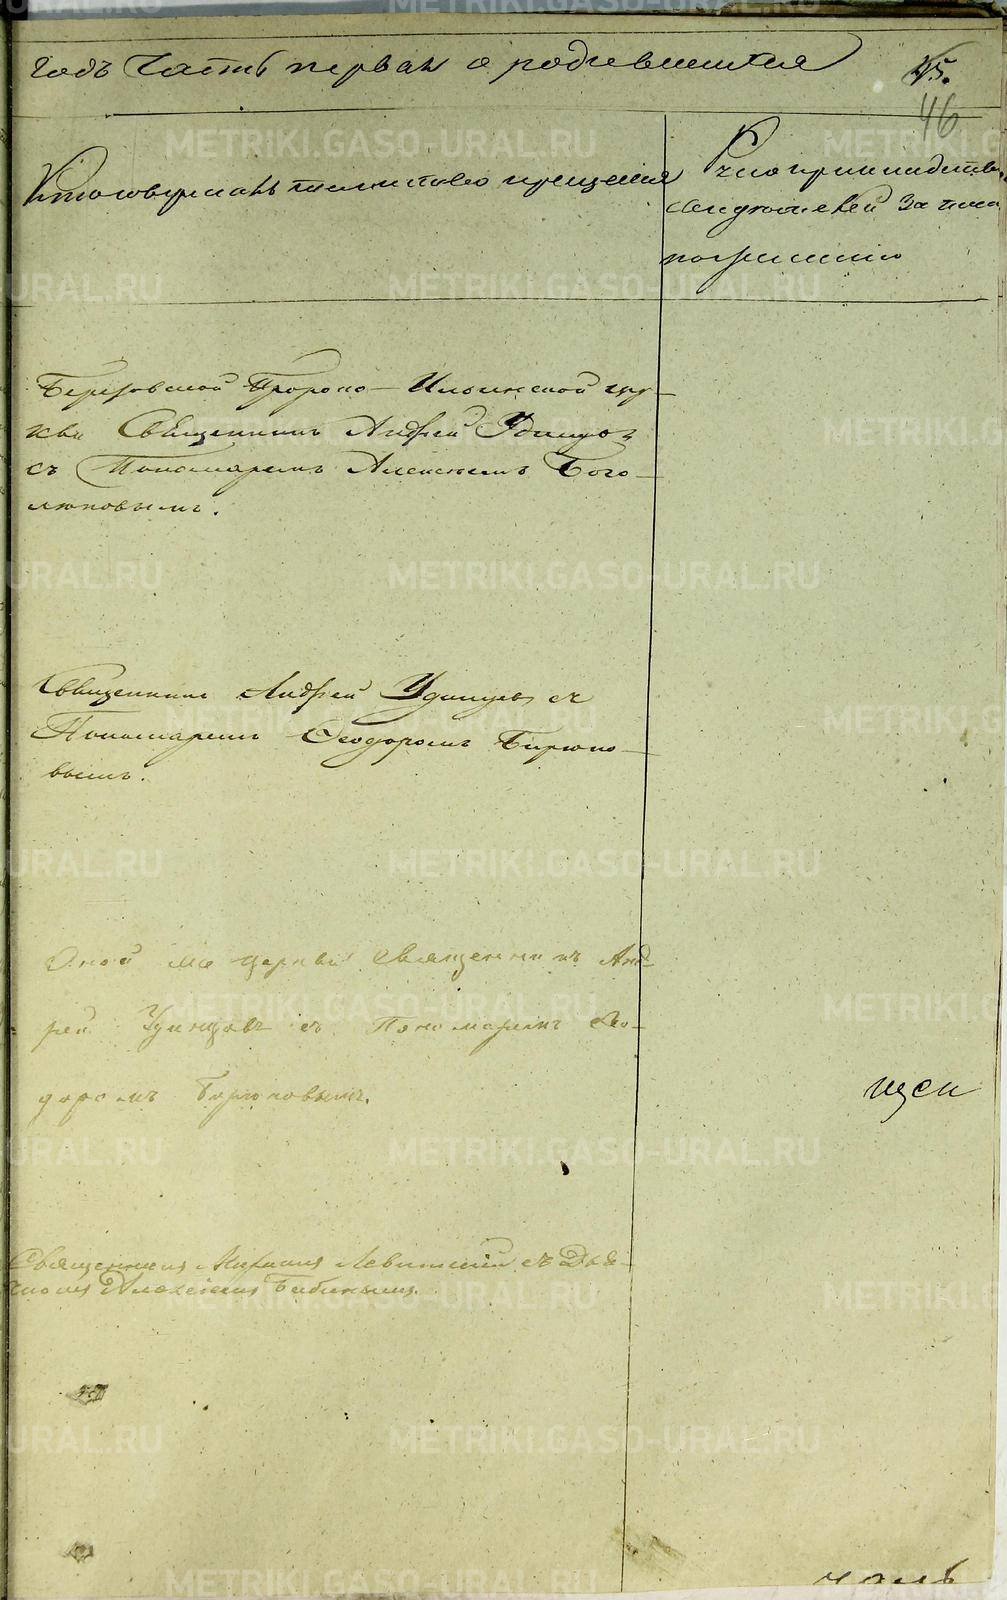 годъ Часть первая о родившихся
45.
46
Кто совершалъ таинство крещенія
Рукоприкладство
свидѣтелей записи
по желанію
Березовской Пророко-Ильинской цер-
кви Священникъ Андрей Удинцовъ
съ Пономаремъ Алексѣемъ Бого-
люповымъ.
Священникъ Андрей Удинцевъ съ
Пономаремъ Ѳеодоромъ Бирюко-
вымъ.
Оной же церкви Священникъ Анд-
рей Удинцовъ съ Пономаремъ Ѳео-
доромъ Бирюковымъ.
Священникъ Михаилъ Левитскій съ Дья-
чкомъ Алексіемъ Бабинымъ.
METRIKI.GASO-URAL.RU